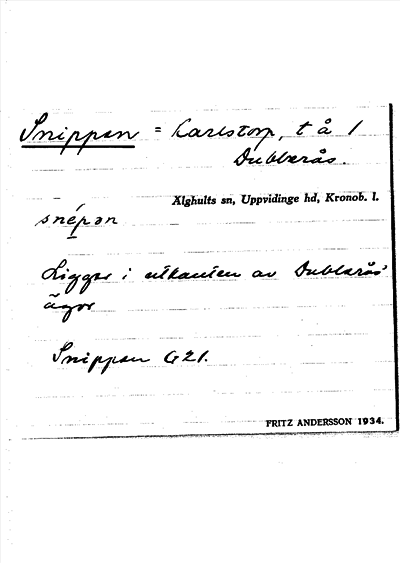 Snippen = Karlstorp, t å 1
Dubberås.
Älghults sn, Uppvidinge hd, Kronob. l.
snépən
Ligger i utkanten av Dubberås'
ägor
Snippen G 21.
FRITZ ANDERSSON 1934.